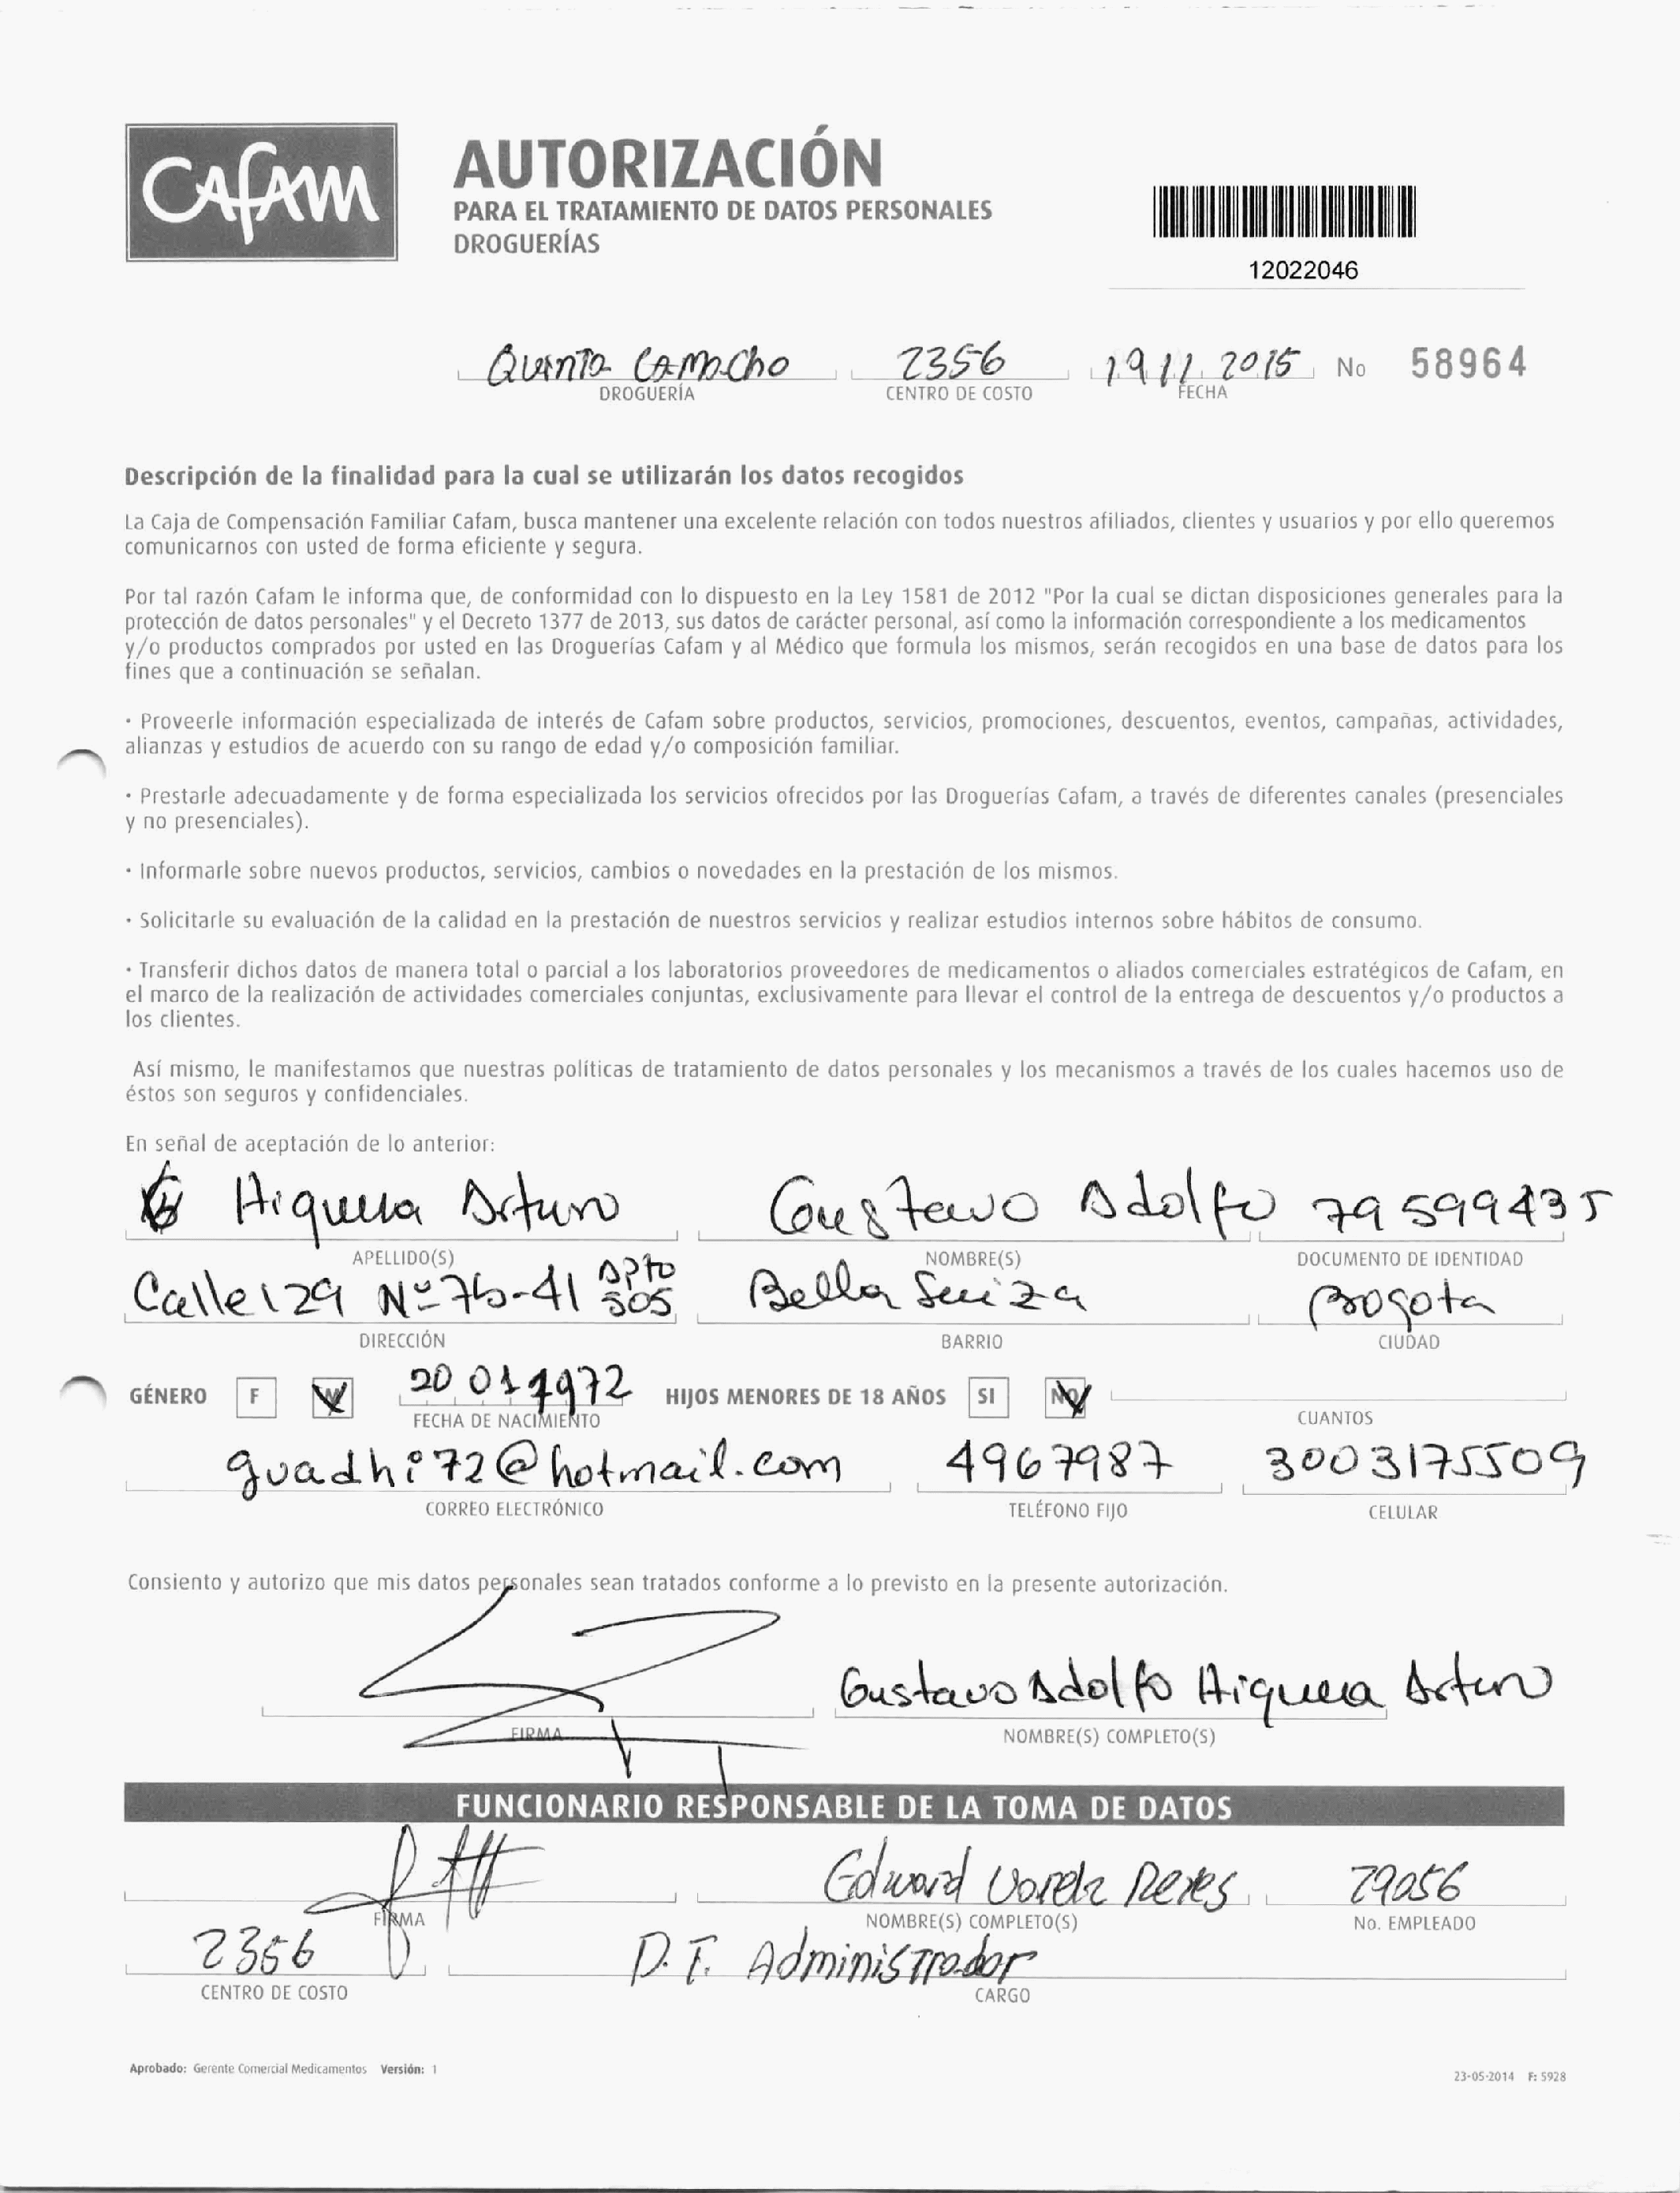 CAFAM
AUTORIZACIÓN
PARA EL TRATAMIENTO DE DATOS PERSONALES
DROGUERÍAS
12022046
Quinta Camacho 2356 19 11 2015 No 58964
DROGUERÍA CENTRO DE COSTO FECHA
Descripción de la finalidad para la cual se utilizarán los datos recogidos
La Caja de Compensación Familiar Cafam, busca mantener una excelente relación con todos nuestros afiliados, clientes y usuarios y por ello queremos
comunicarnos con usted de forma eficiente y segura.
Por tal razón Cafam le informa que, de conformidad con lo dispuesto en la Ley 1581 de 2012 "Por la cual se dictan disposiciones generales para la
protección de datos personales" y el Decreto 1377 de 2013, sus datos de carácter personal, así como la información correspondiente a los medicamentos
y/o productos comprados por usted en las Droguerías Cafam y al Médico que formula los mismos, serán recogidos en una base de datos para los
fines que a continuación se señalan.
· Proveerle información especializada de interés de Cafam sobre productos, servicios, promociones, descuentos, eventos, campañas, actividades,
alianzas y estudios de acuerdo con su rango de edad y/o composición familiar.
· Prestarle adecuadamente y de forma especializada los servicios ofrecidos por las Droguerías Cafam, a través de diferentes canales (presenciales
y no presenciales).
· Informarle sobre nuevos productos, servicios, cambios o novedades en la prestación de los mismos.
· Solicitarle su evaluación de la calidad en la prestación de nuestros servicios y realizar estudios internos sobre hábitos de consumo.
· Transferir dichos datos de manera total o parcial a los laboratorios proveedores de medicamentos o aliados comerciales estratégicos de Cafam, en
el marco de la realización de actividades comerciales conjuntas, exclusivamente para llevar el control de la entrega de descuentos y/o productos a
los clientes.
Así mismo, le manifestamos que nuestras políticas de tratamiento de datos personales y los mecanismos a través de los cuales hacemos uso de
éstos son seguros y confidenciales.
En señal de aceptación de lo anterior:
Higuera Arturo Gustavo Adolfo 79599435
APELLIDO(S) NOMBRE(S) DOCUMENTO DE IDENTIDAD
Calle 129 Nº 7b-41 Apto 505 Bella Suiza Bogota
DIRECCIÓN BARRIO CIUDAD
GÉNERO F M 20 01 1972 HIJOS MENORES DE 18 AÑOS SI NO
FECHA DE NACIMIENTO CUANTOS
guadhi72@hotmail.com 4967987 3003175509
CORREO ELECTRÓNICO TELÉFONO FIJO CELULAR
Consiento y autorizo que mis datos personales sean tratados conforme a lo previsto en la presente autorización.
Gustavo Adolfo Higuera Arturo
FIRMA NOMBRE(S) COMPLETO(S)
FUNCIONARIO RESPONSABLE DE LA TOMA DE DATOS
Edward Varela Reyes 79056
FIRMA NOMBRE(S) COMPLETO(S) No. EMPLEADO
2356 D.T. Administrador
CENTRO DE COSTO CARGO
Aprobado: Gerente Comercial Medicamentos Versión: 1
23-05-2014 F: 5928